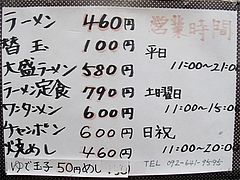 ラーメン 460円
替玉 100円
大盛ラーメン 580円
ラーメン定食 790円
ワンタンメン 600円
チャンポン 600円
焼めし 460円
ゆで玉子 50円
営業時間
平日
11:00〜21:00
土曜日
11:00〜15:00
日祝
11:00〜20:00
TEL 092-641-9595